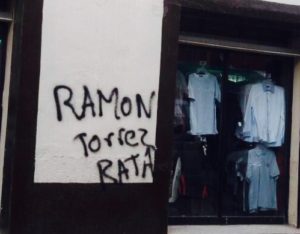 RAMON
Torrez
RATA